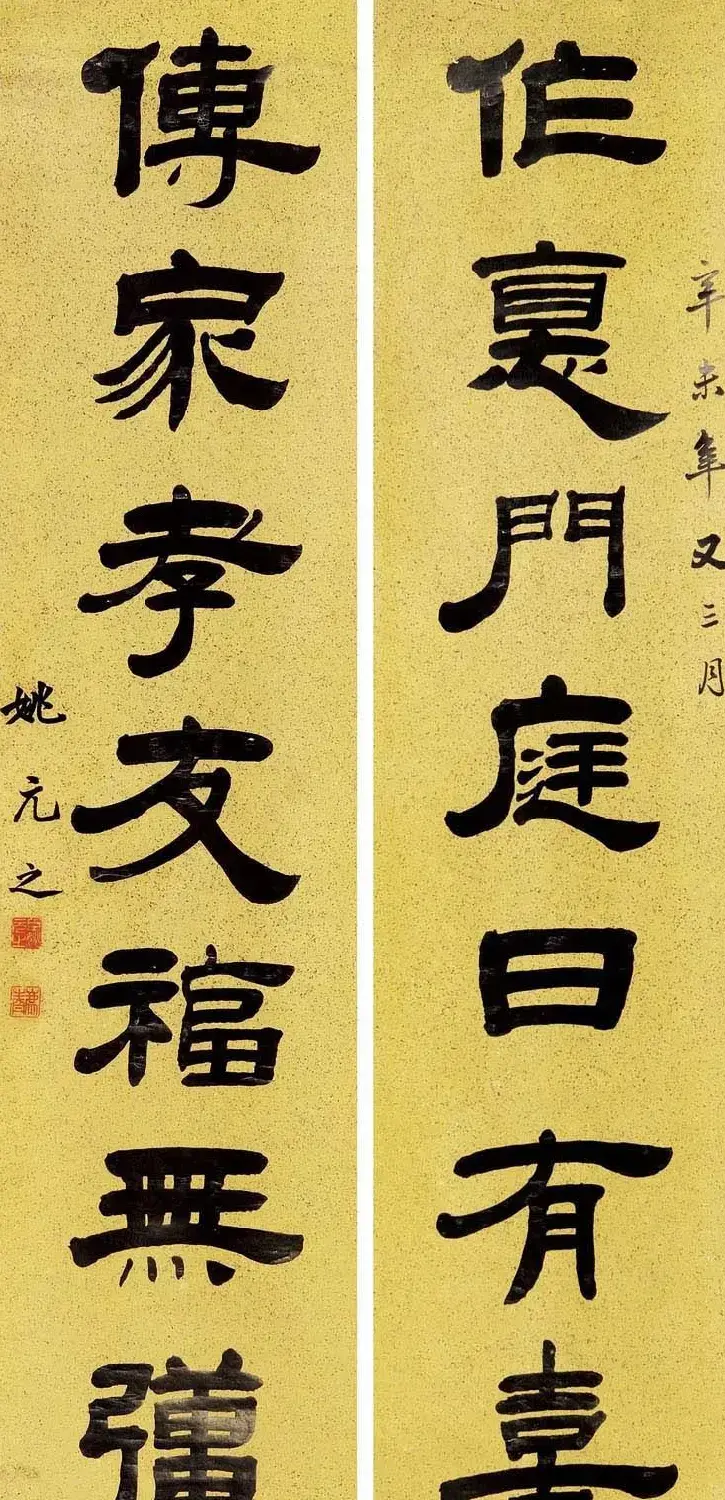 辛未年又三月
作悳門庭日有喜
傳家孝友福無疆
姚元之